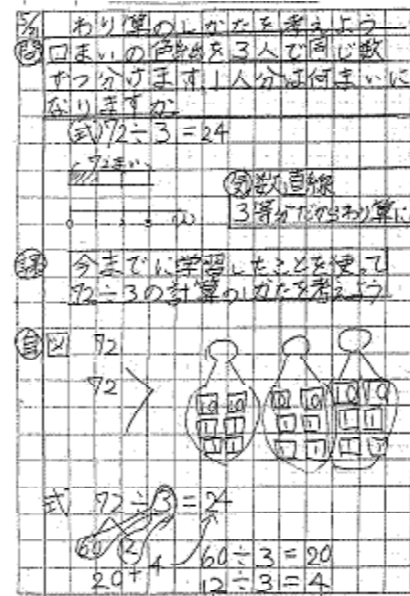 5/21 わり算のしかたを考えよう
問 口まいの色紙を3人で同じ数
ずつ分けます。1人分は何まいに
なりますか。
(式)72÷3=24
72まい
気 数直線
0 (人)
3等分だからわり算に
課 今までに学習したことを使って
72÷3の計算のしかたを考えよう
自 図 72
72
10 10 10 10 10 10
1 1 1 1 1 1
1 1 1 1 1 1
式 72÷3=24
60 12 60÷3=20
20+4 12÷3=4